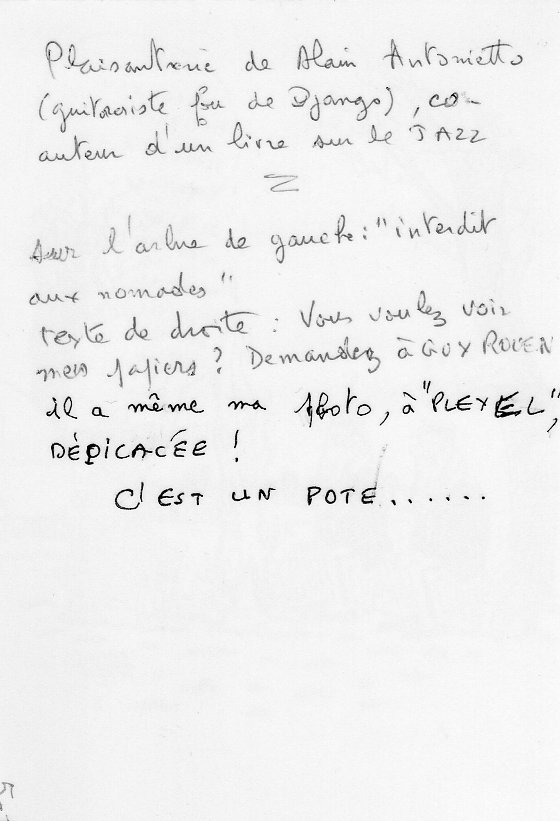 Plaisanterie de Alain Antonietto
(guitariste fou de Django), co-
auteur d'un livre sur le JAZZ
sur l'arbre de gauche : "interdit
aux nomades"
texte de droite : Vous voulez voir
mes papiers ? Demandez à GUY ROUEN
il a même ma photo, à "PLEYEL",
DÉDICACÉE !
C'EST UN POTE......